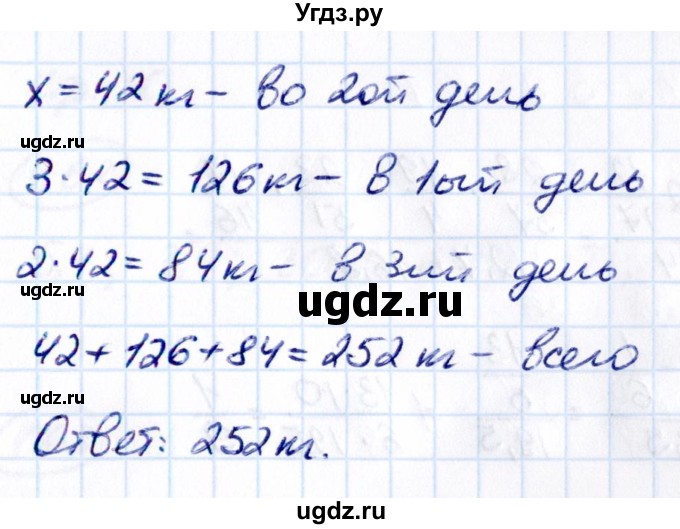 Угдз.ру
x = 42 кг – во 2ой день
ugdz.ru
3·42 = 126 кг – в 1ый день
ugdz.ru
2·42 = 84 кг – в 3ий день
ugdz.ru
ugdz.ru
42 + 126 + 84 = 252 кг – всего
ugdz.ru
Ответ: 252 кг.
ugdz.ru
ugdz.ru